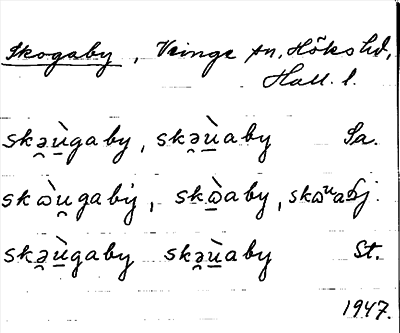 Skogaby, Veinge sn, Höks hd,
Hall. l.
skə̯ù̱gaby, skə̯ù̱aby Sa.
skɷ̀u̯gabẏ, skɷ̱̀aby, skɷᵘabj.
skə̯ù̱gaby skə̯ù̱aby St.
1947.